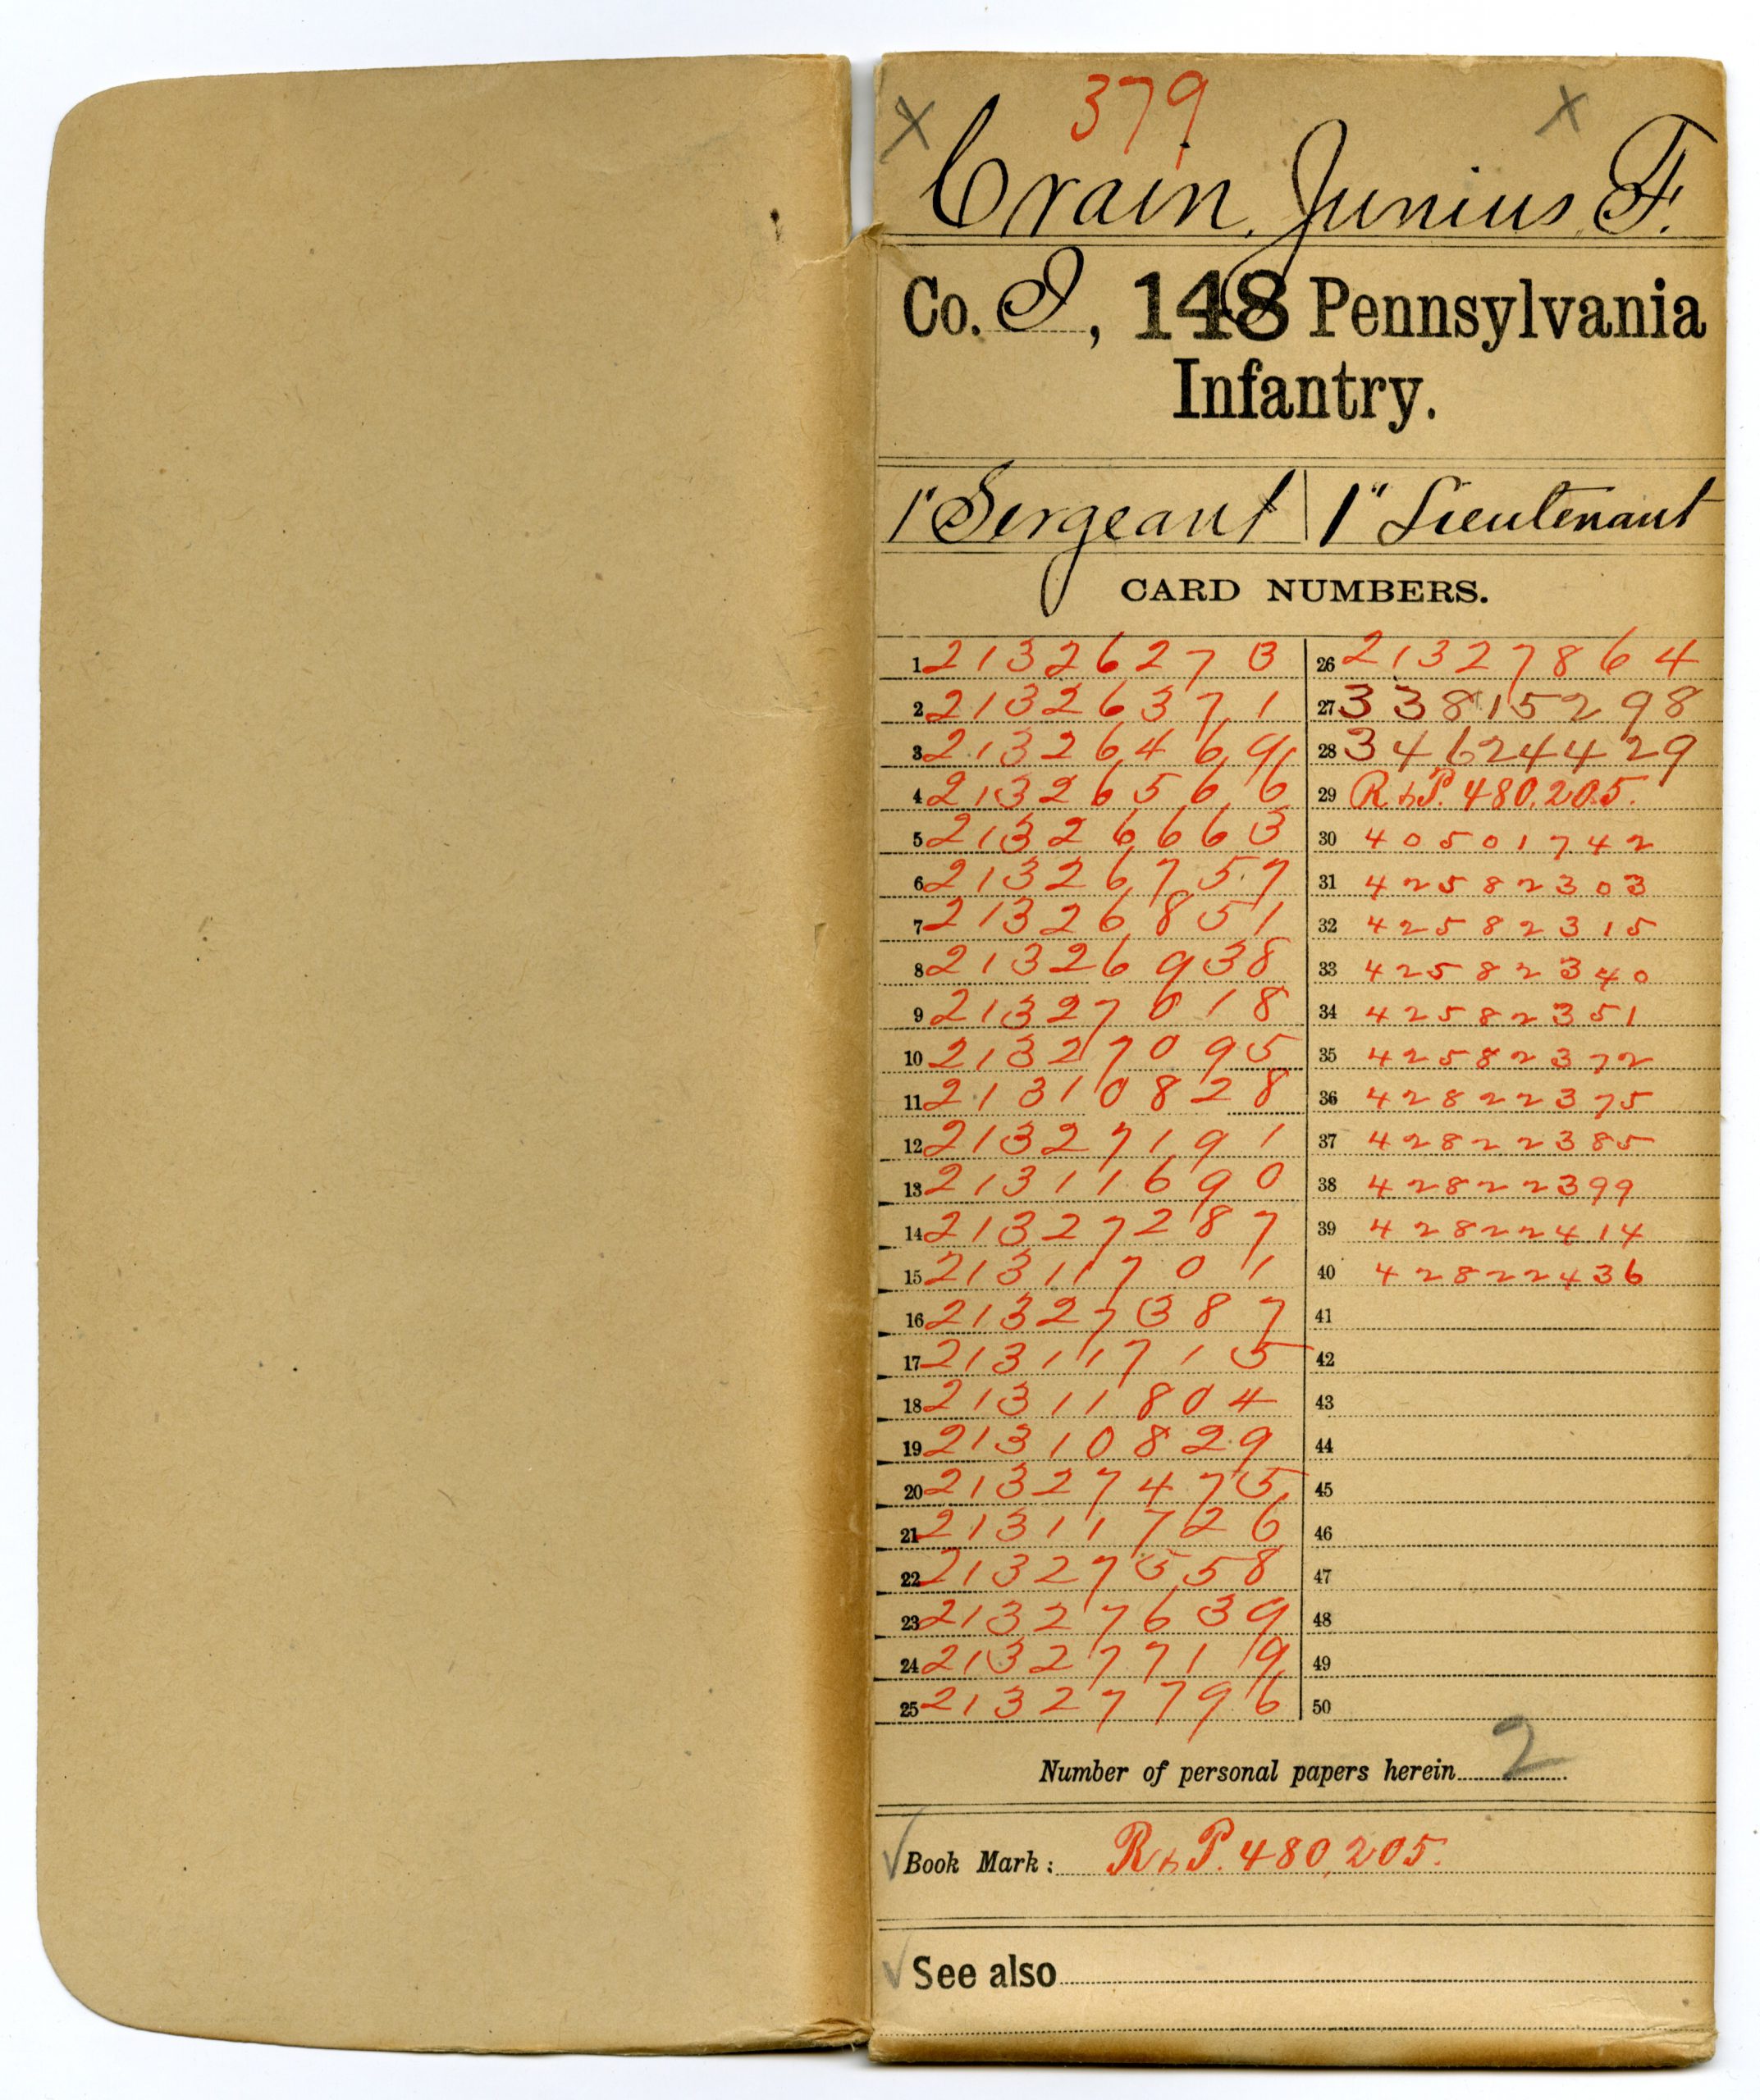 379
x x
Crain, Junius F.
Co. I, 148 Pennsylvania
Infantry.
1" Sergeant | 1" Lieutenant
CARD NUMBERS.
1 21326273
2 21326371
3 21326469
4 21326566
5 21326663
6 21326757
7 21326851
8 21326938
9 21327018
10 21327095
11 21310828
12 21327191
13 21311690
14 21327287
15 21311701
16 21327387
17 21311715
18 21311804
19 21310829
20 21327475
21 21311726
22 21327558
23 21327639
24 21327719
25 21327796
26 21327864
27 33815298
28 34624429
29 R & P. 480,205.
30 40501742
31 42582303
32 42582315
33 42582340
34 42582351
35 42582372
36 42822375
37 42822385
38 42822399
39 42822414
40 42822436
41
42
43
44
45
46
47
48
49
50
Number of personal papers herein 2
Book Mark: R & P. 480,205.
See also